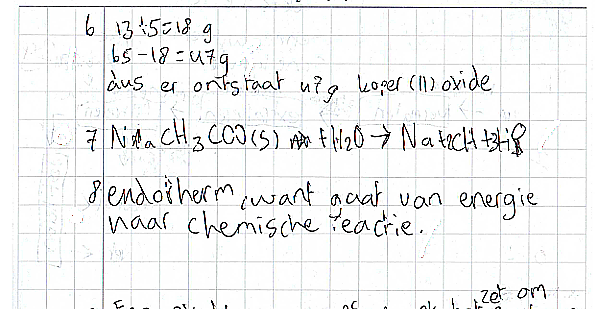 6 13+5=18 g
65-18=47g
dus er ontstaat 47g koper(II)oxide
7 NaCH3COO(s) +H2O → Na+2CH+3H
8 endotherm, want gaat van energie
naar chemische reactie.
zet om